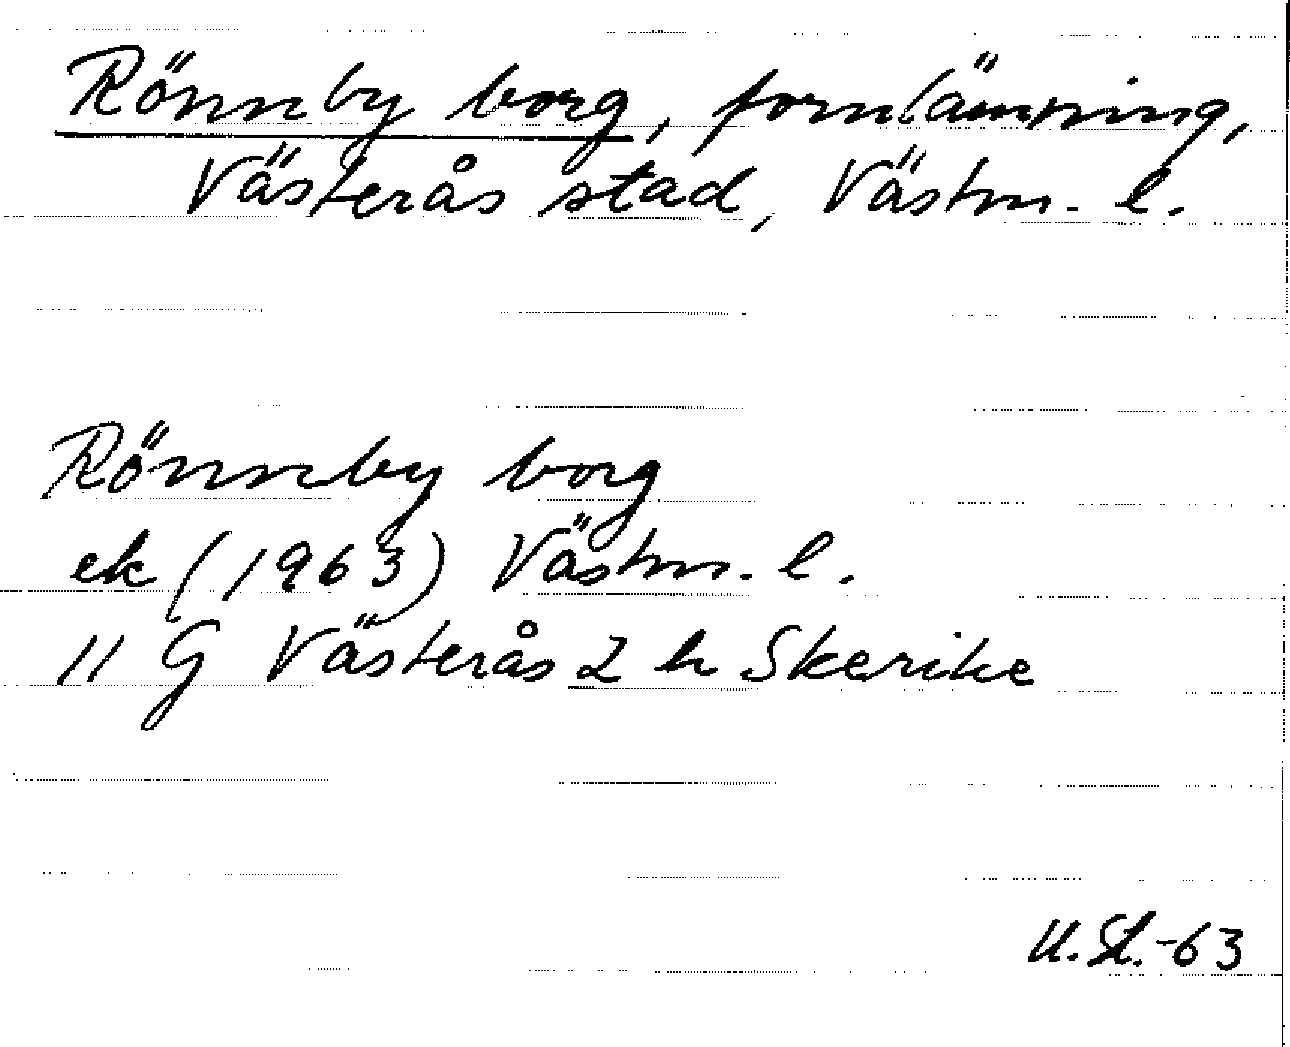 Rönnby borg, fornlämning,
Västerås stad, Västm. l.
Rönnby borg
ek (1963) Västm. l.
11 G Västerås 2 h Skerike
U. St.-63